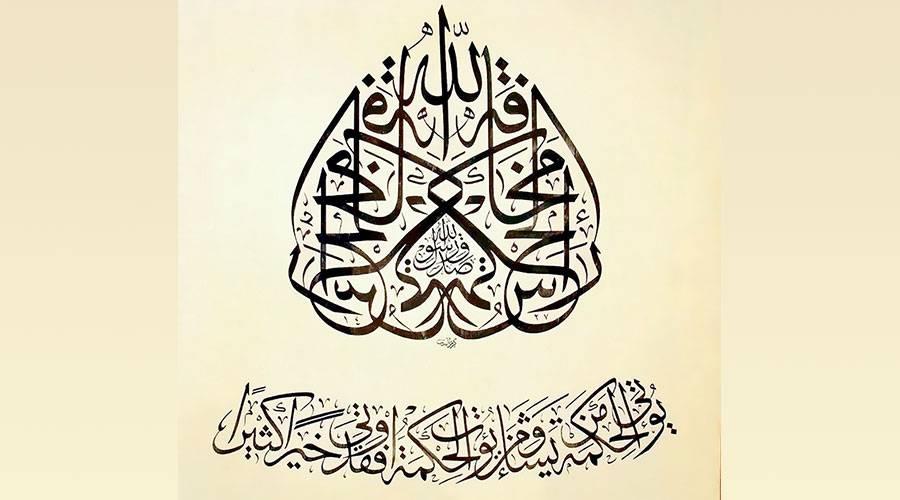 رأس الحكمة مخافة الله
صدق رسول الله
١٤ ٢٧
يؤتي الحكمة من يشاء ومن يؤت الحكمة فقد اوتي خيرًا كثيرًا